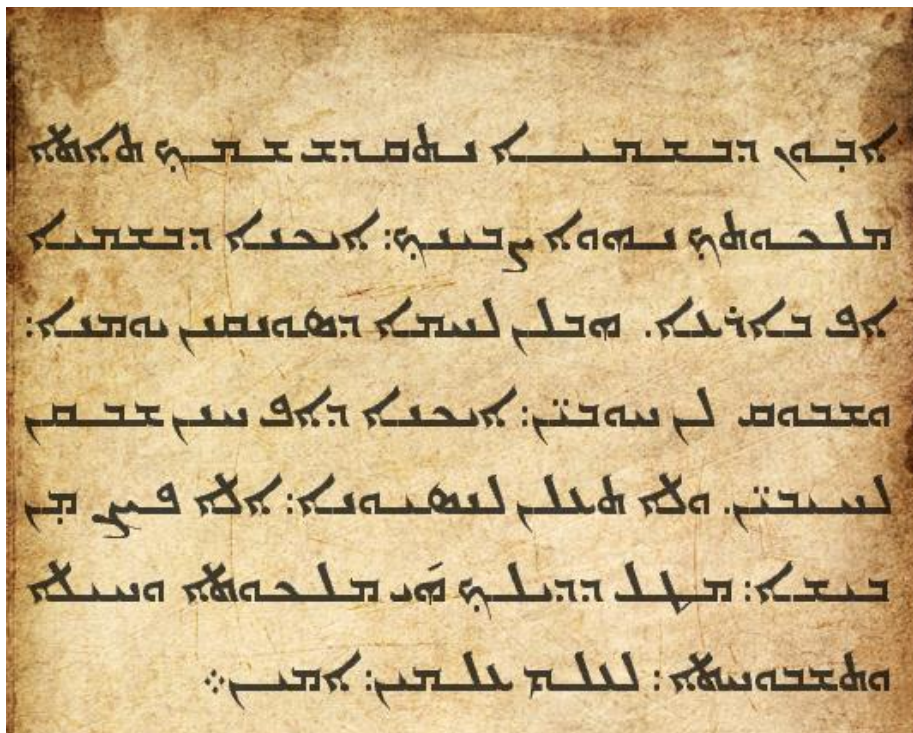 ܐܒ݂ܘܢ ܕܒܫܡܝܐ ܢܬܩܕܫ ܫܡܟ݂ ܬܐܬܐ
ܡܠܟܘܬܟ݂ ܢܗܘܐ ܨܒܝܢܟ݂: ܐܝܟܢܐ ܕܒܫܡܝܐ
ܐܦ ܒܐܪܥܐ. ܗܒܠܢ ܠܚܡܐ ܕܣܘܢܩܢܢ ܝܘܡܢܐ:
ܘܫܒܘܩ ܠܢ ܚܘܒܝ̈ܢ: ܐܝܟܢܐ ܕܐܦ ܚܢܢ ܫܒܩܢ
ܠܚܝܒܝ̈ܢ. ܘܠܐ ܬܥܠܢ ܠܢܣܝܘܢܐ: ܐܠܐ ܦܨܢ ܡ̣ܢ
ܒܝܫܐ: ܡܛܠ ܕܕܝܠܟ݂ ܗܝ ܡܠܟܘܬܐ ܘܚܝܠܐ
ܘܬܫܒܘܚܬܐ: ܠܥܠܡ ܥܠܡܝܢ: ܐܡܝܢ܀